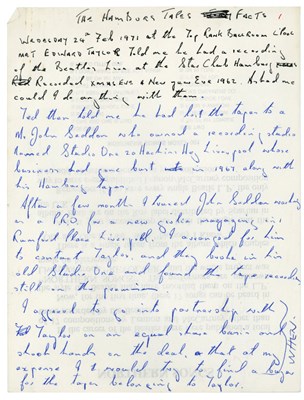 THE HAMBURG TAPES FACTS
WEDNESDAY 24th FEB 1971 at the Top Rank Ballroom
MET EDWARD TAYLOR Told me he had a recording
of the Beatles Live at the Star Club Hamburg
Recorded XMAS EVE & New Year EVE 1962. Asked me
could I do anything with them.
Ted then told me he had lent the tapes to a
Mr John Seddon who owned a recording studio
named Studio One 20 Hackins Hey Liverpool whose
business had gone bust in 1967 along with
his Hamburg Tapes.
After a few months I traced John Seddon working
as a P.R.O. for a new magazine in
Ranford Place Liverpool. I arranged for him
to contact Taylor, and they broke in his
old Studio One and found the tapes recording
still in the premises
I agreed to go into partnership with
Taylor on an equal share basis and
shook hands on the deal, & that at my
expense I would try to find a buyer
for the tapes belonging to Taylor.
WHEN.